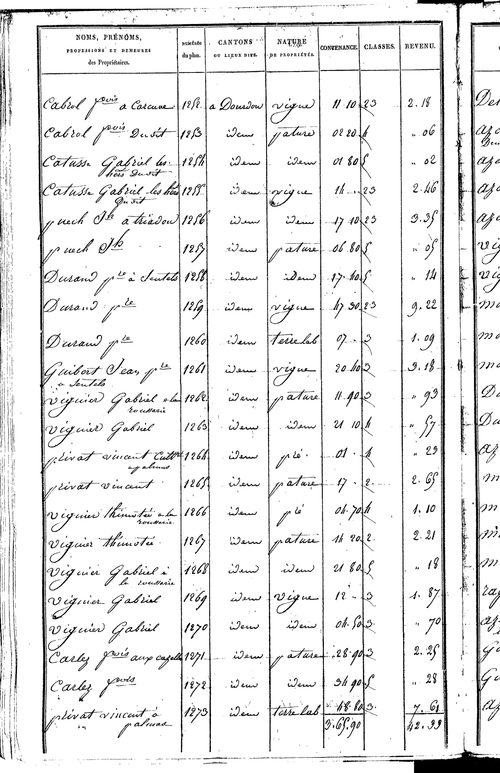 NOMS, PRÉNOMS, PROFESSIONS ET DEMEURES des Propriétaires. NUMÉROS du plan. CANTONS OU LIEUX DITS. NATURE DE PROPRIÉTÉS. CONTENANCE. CLASSES. REVENU.
Cabrol pois à 1252 a Dourdou vigne 11 10 23 2.18
Cabrol pois Dudit 1253 idem pature 02 20 4 " 06
Catussa Gabriel les hérs Dudit 1254 idem idem 01 80 5 " 02
Catussa Gabriel les hérs Dudit 1255 idem vigne 14 23 2.46
puech Jh 1256 idem idem 17 10 23 3.35
puech Jh 1257 idem pature 06 80 5 " 05
Durand pre à Sentels 1258 idem idem 17.40 5 " 14
Durand pre 1259 idem vigne 47 30 23 9.22
Durand pre 1260 idem terre lab 07 . 3 1.09
Guibert Jean pre à Sentels 1261 idem vigne 20 40 3 3.18
viguier Gabriel a la rousserie 1262 idem pature 11.90 3 " 93
viguier Gabriel 1263 idem idem 21 10 4 " 57
privat vincent 1264 idem pré 01 . 4 " 23
privat vincent 1265 idem pature 17 . 2 2.65
viguier thimotée a la rousserie 1266 idem pré 04.70 4 1.10
viguier thimotée 1267 idem pature 14 20 2 2.21
viguier Gabriel à la rousserie 1268 idem idem 21 80 5 " 18
viguier Gabriel 1269 idem vigne 12 " 3 1.87
viguier Gabriel 1270 idem idem 04.50 3 " 70
Carlez pois aux cazelles 1271 idem pature 28.90 3 2.25
Carlez pois 1272 idem idem 34 90 5 " 28
privat vincent à palmas 1273 idem terre lab 48 80 3 7.61
3.65.90 42.33